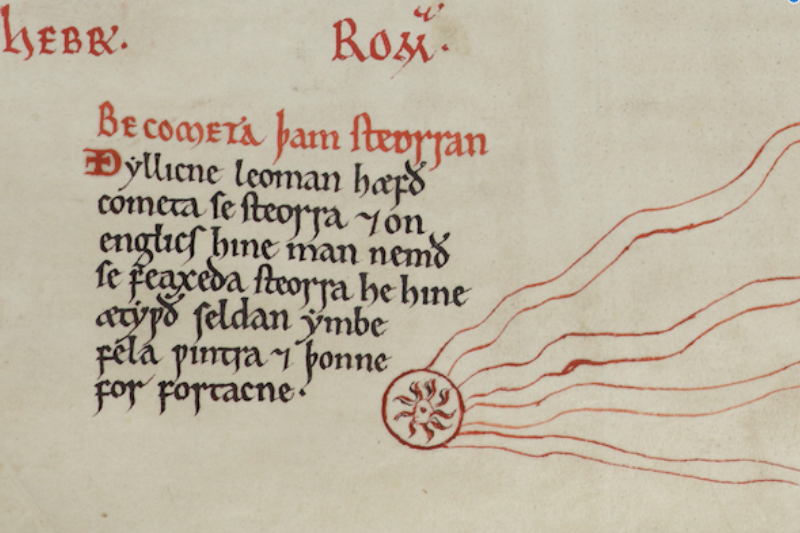 HEBR. ROM.
Be cometa þam steorran
Ðyllicne leoman hæfð
cometa se steorra ⁊ on
englics hine man nemð
se feaxeda steorra he hine
ætyƿð seldan ymbe
fela ƿintra ⁊ þonne
for fortacne.